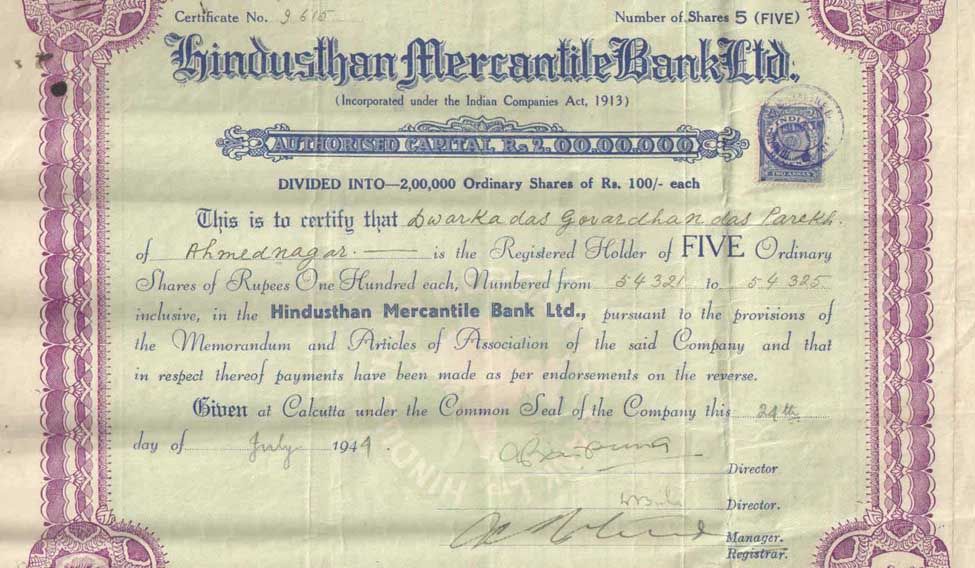 Certificate No. 9615 Number of Shares 5 (FIVE)
Hindusthan Mercantile Bank Ltd.
(Incorporated under the Indian Companies Act, 1913)
AUTHORISED CAPITAL Rs. 2,00,00,000
DIVIDED INTO—2,00,000 Ordinary Shares of Rs. 100/- each
This is to certify that Dwarkadas Govardhandas Parekh.
of Ahmednagar. is the Registered Holder of FIVE Ordinary
Shares of Rupees One Hundred each, Numbered from 54321 to 54325
inclusive, in the Hindusthan Mercantile Bank Ltd., pursuant to the provisions of
the Memorandum and Articles of Association of the said Company and that
in respect thereof payments have been made as per endorsements on the reverse.
Given at Calcutta under the Common Seal of the Company this 24th
day of July 1944
Director
Director.
Manager.
Registrar.
INDIA
TWO ANNAS